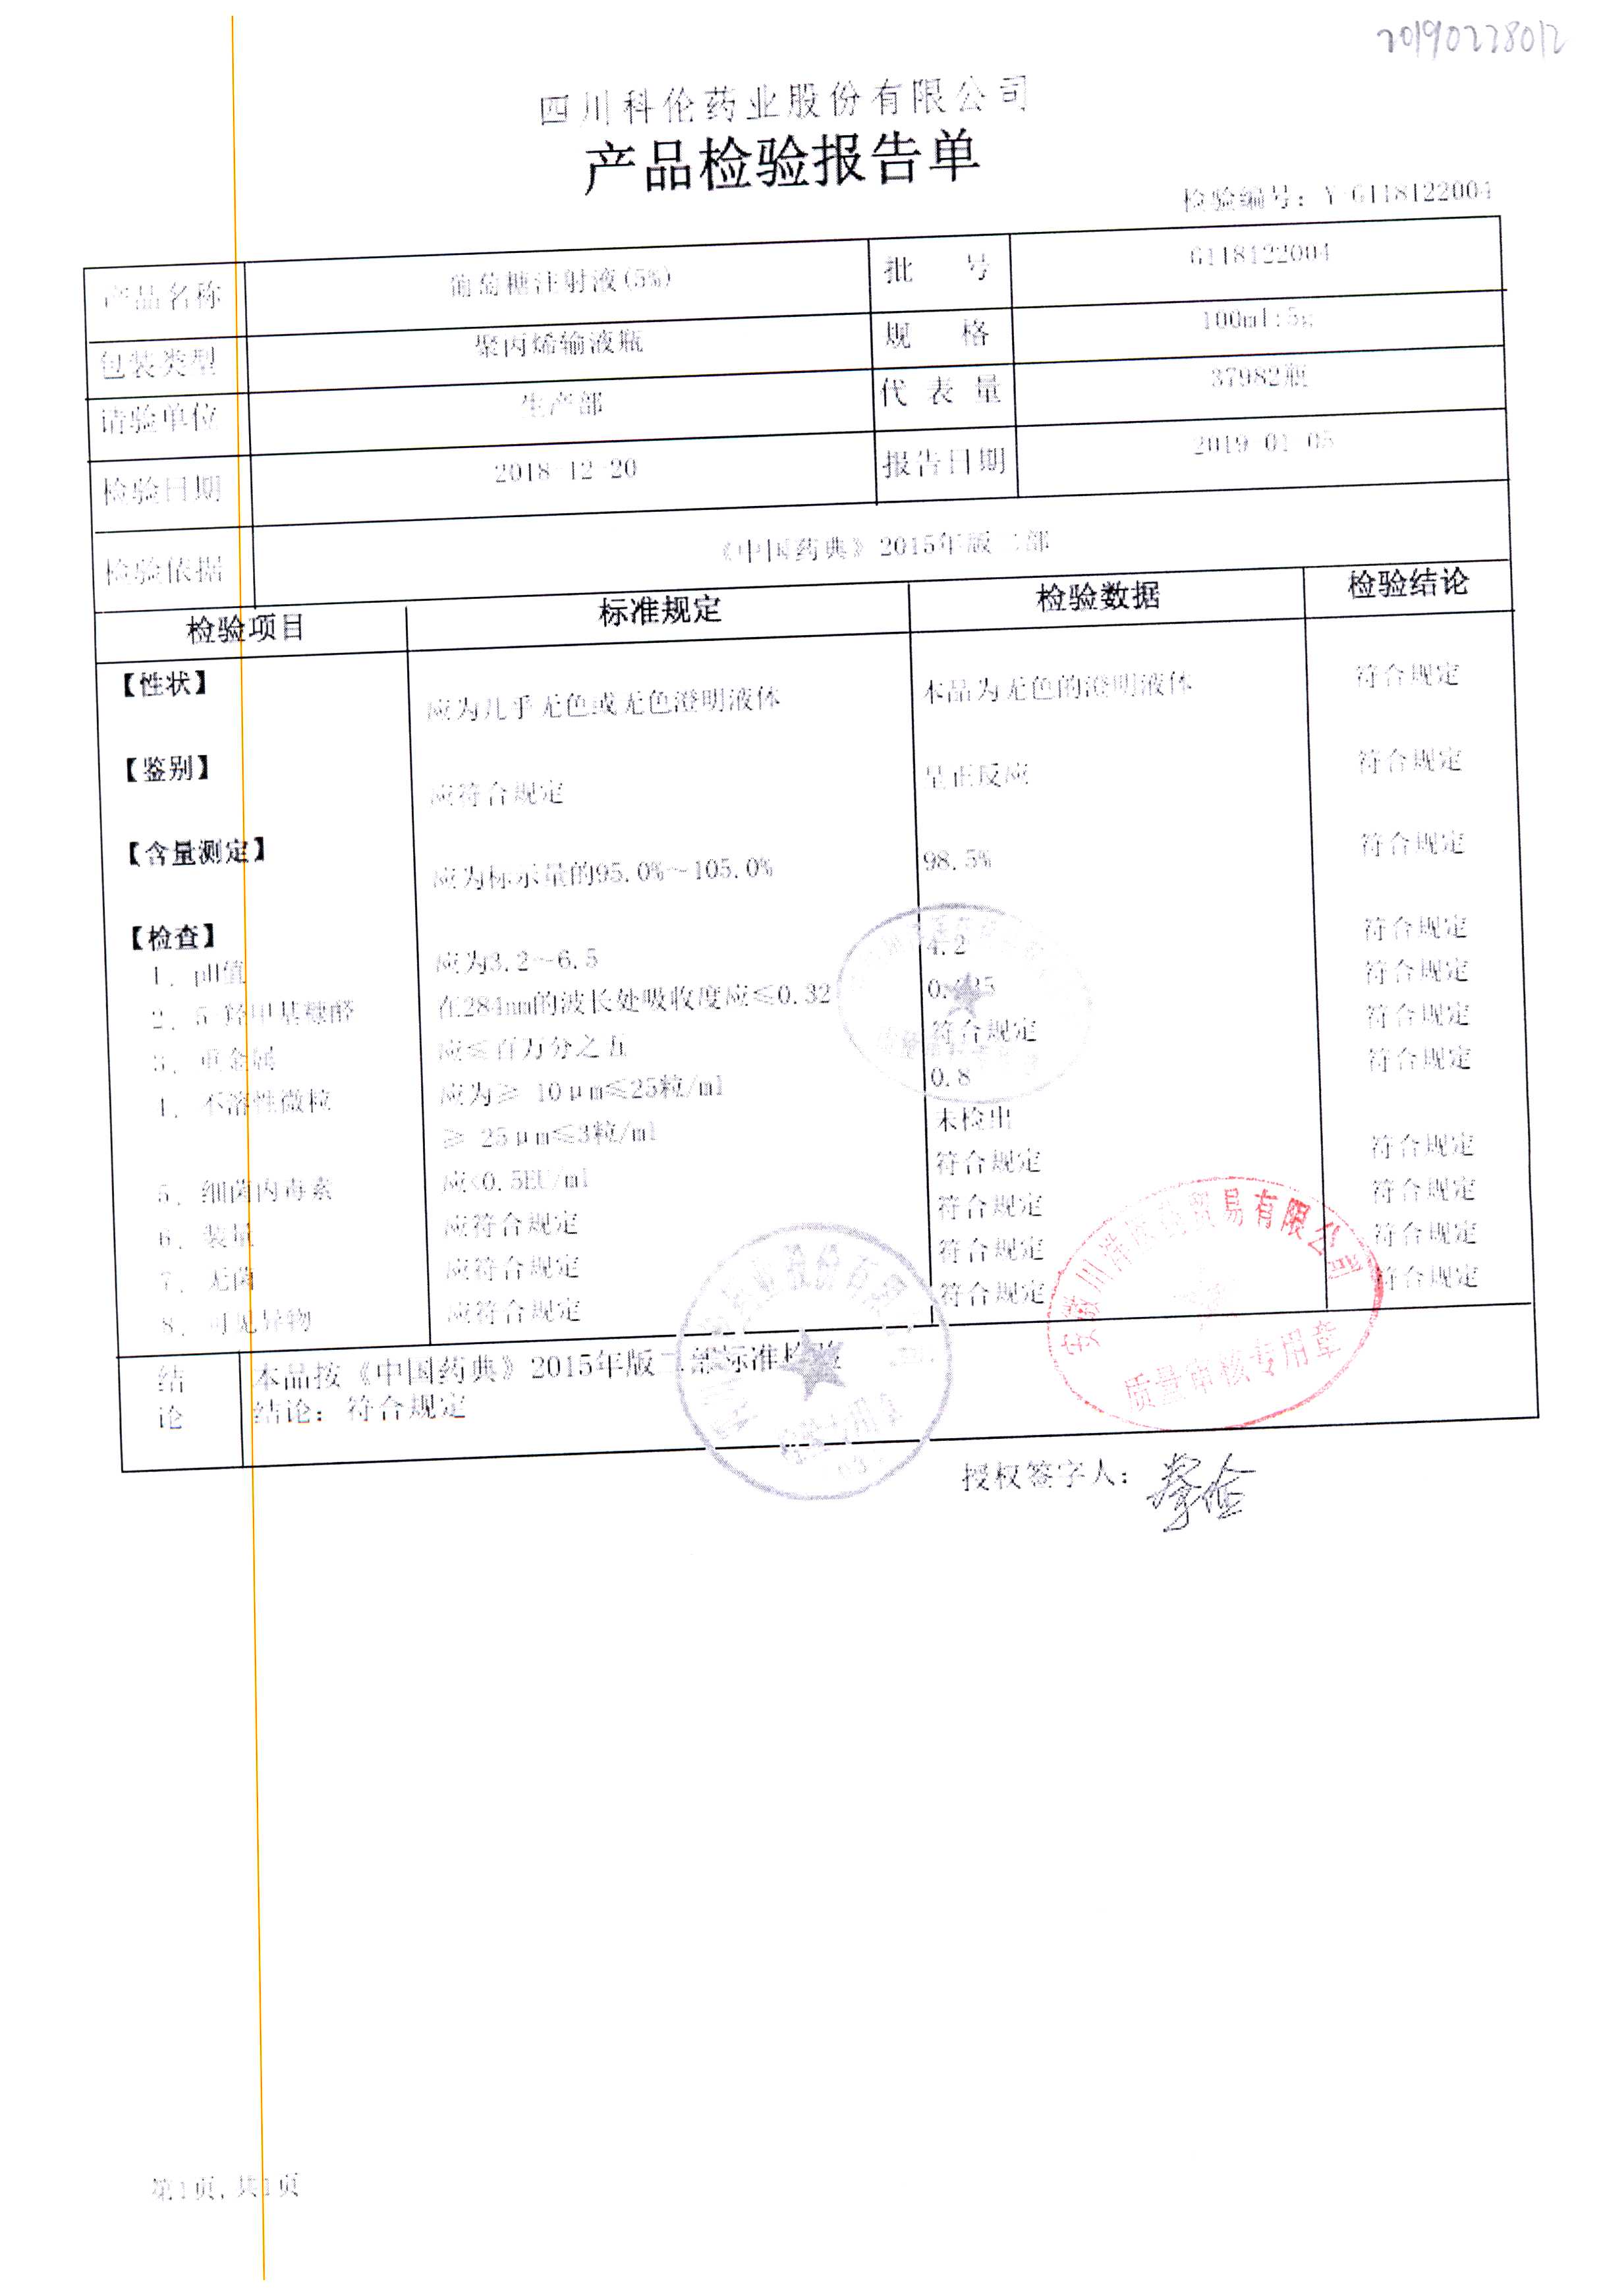 20190228012
四川科伦药业股份有限公司
产品检验报告单
检验编号：Y-G118122004
产品名称 葡萄糖注射液(5%) 批 号 G118122004
包装类型 聚丙烯输液瓶 规 格 100ml:5g
请验单位 生产部 代 表 量 37982瓶
检验日期 2018-12-20 报告日期 2019-01-05
检验依据 《中国药典》2015年版二部
检验项目 标准规定 检验数据 检验结论
【性状】 应为几乎无色或无色澄明液体 本品为无色的澄明液体 符合规定
【鉴别】 应符合规定 呈正反应 符合规定
【含量测定】 应为标示量的95.0%~105.0% 98.5% 符合规定
【检查】
1. pH值 应为3.2~6.5 4.2 符合规定
2. 5-羟甲基糠醛 在284nm的波长处吸收度应≤0.32 符合规定
3. 重金属 应≤百万分之五 符合规定 符合规定
4. 不溶性微粒 应为≥ 10μm≤25粒/ml 0.8 符合规定
≥ 25μm≤3粒/ml 未检出
5. 细菌内毒素 应<0.5EU/ml 符合规定 符合规定
6. 装量 应符合规定 符合规定 符合规定
7. 无菌 应符合规定 符合规定 符合规定
8. 可见异物 应符合规定 符合规定 符合规定
结论 本品按《中国药典》2015年版二部标准检验
结论：符合规定
贸易有限公司
质量审核专用章
授权签字人：
第1页,共1页